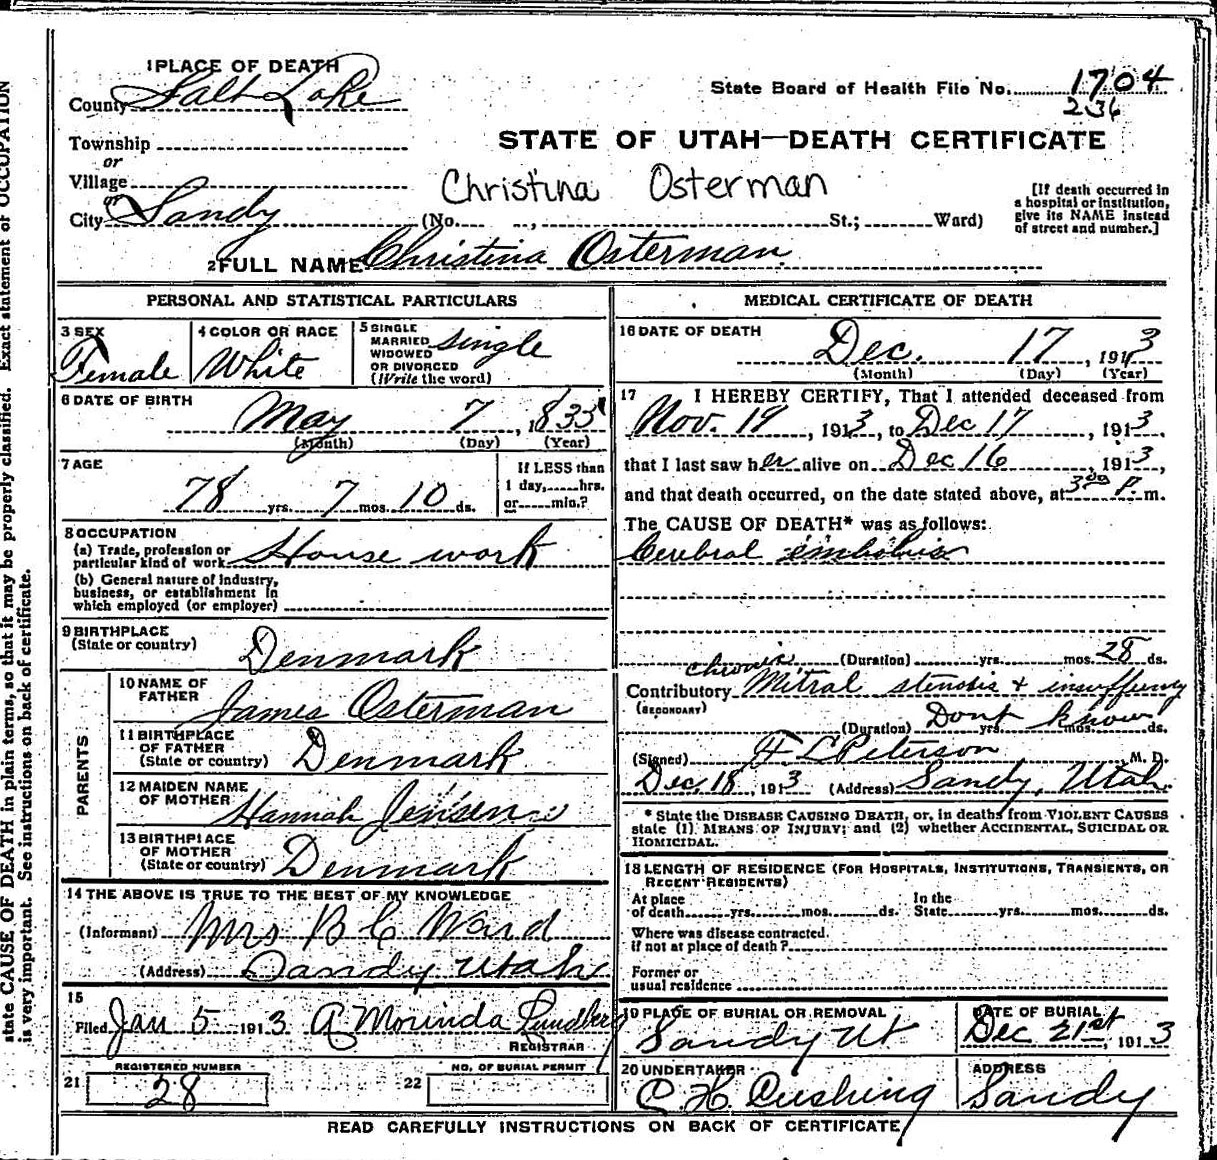 1 PLACE OF DEATH
County Salt Lake
State Board of Health File No. 1704
236
Township
or
Village
or
City Sandy
STATE OF UTAH—DEATH CERTIFICATE
Christina Osterman
(No. , St.; Ward)
[If death occurred in
a hospital or institution,
give its NAME instead
of street and number.]
2 FULL NAME Christina Osterman
PERSONAL AND STATISTICAL PARTICULARS
3 SEX
Female
4 COLOR OR RACE
White
5 SINGLE
MARRIED
WIDOWED
OR DIVORCED
(Write the word)
single
6 DATE OF BIRTH
May 7, 1835
(Month) (Day) (Year)
7 AGE
78 yrs. 7 mos. 10 ds.
If LESS than
1 day, hrs.
or min.?
8 OCCUPATION
(a) Trade, profession or
particular kind of work House work
(b) General nature of industry,
business, or establishment in
which employed (or employer)
9 BIRTHPLACE
(State or country)
Denmark
PARENTS
10 NAME OF
FATHER
James Osterman
11 BIRTHPLACE
OF FATHER
(State or country)
Denmark
12 MAIDEN NAME
OF MOTHER
Hannah Jensen
13 BIRTHPLACE
OF MOTHER
(State or country)
Denmark
14 THE ABOVE IS TRUE TO THE BEST OF MY KNOWLEDGE
(Informant) Mrs B C Ward
(Address) Sandy Utah
15
Filed Jan 5 1913 A Morinda Lundberg
REGISTRAR
REGISTERED NUMBER
21 28
NO. OF BURIAL PERMIT
22
MEDICAL CERTIFICATE OF DEATH
16 DATE OF DEATH
Dec. 17, 1913
(Month) (Day) (Year)
17 I HEREBY CERTIFY, That I attended deceased from
Nov. 19, 1913, to Dec 17, 1913,
that I last saw her alive on Dec 16, 1913,
and that death occurred, on the date stated above, at 3 00 P. m.
The CAUSE OF DEATH* was as follows:
Cerebral embolism
(Duration) yrs. mos. 28 ds.
chronic
Contributory Mitral stenosis +
(SECONDARY)
(Duration) Dont know yrs. mos. ds.
(Signed) F L Peterson M. D.
Dec. 18, 1913 (Address) Sandy, Utah.
* State the DISEASE CAUSING DEATH, or, in deaths from VIOLENT CAUSES
state (1) MEANS OF INJURY; and (2) whether ACCIDENTAL, SUICIDAL OR
HOMICIDAL.
18 LENGTH OF RESIDENCE (FOR HOSPITALS, INSTITUTIONS, TRANSIENTS, OR
RECENT RESIDENTS)
At place
of death yrs. mos. ds.
In the
State yrs. mos. ds.
Where was disease contracted,
if not at place of death?
Former or
usual residence
19 PLACE OF BURIAL OR REMOVAL
Sandy Ut
DATE OF BURIAL
Dec 21st, 1913
20 UNDERTAKER
C. H. Cushing
ADDRESS
Sandy
READ CAREFULLY INSTRUCTIONS ON BACK OF CERTIFICATE
state CAUSE OF DEATH in plain terms, so that it may be properly classified. Exact statement of OCCUPATION
is very important. See instructions on back of certificate.